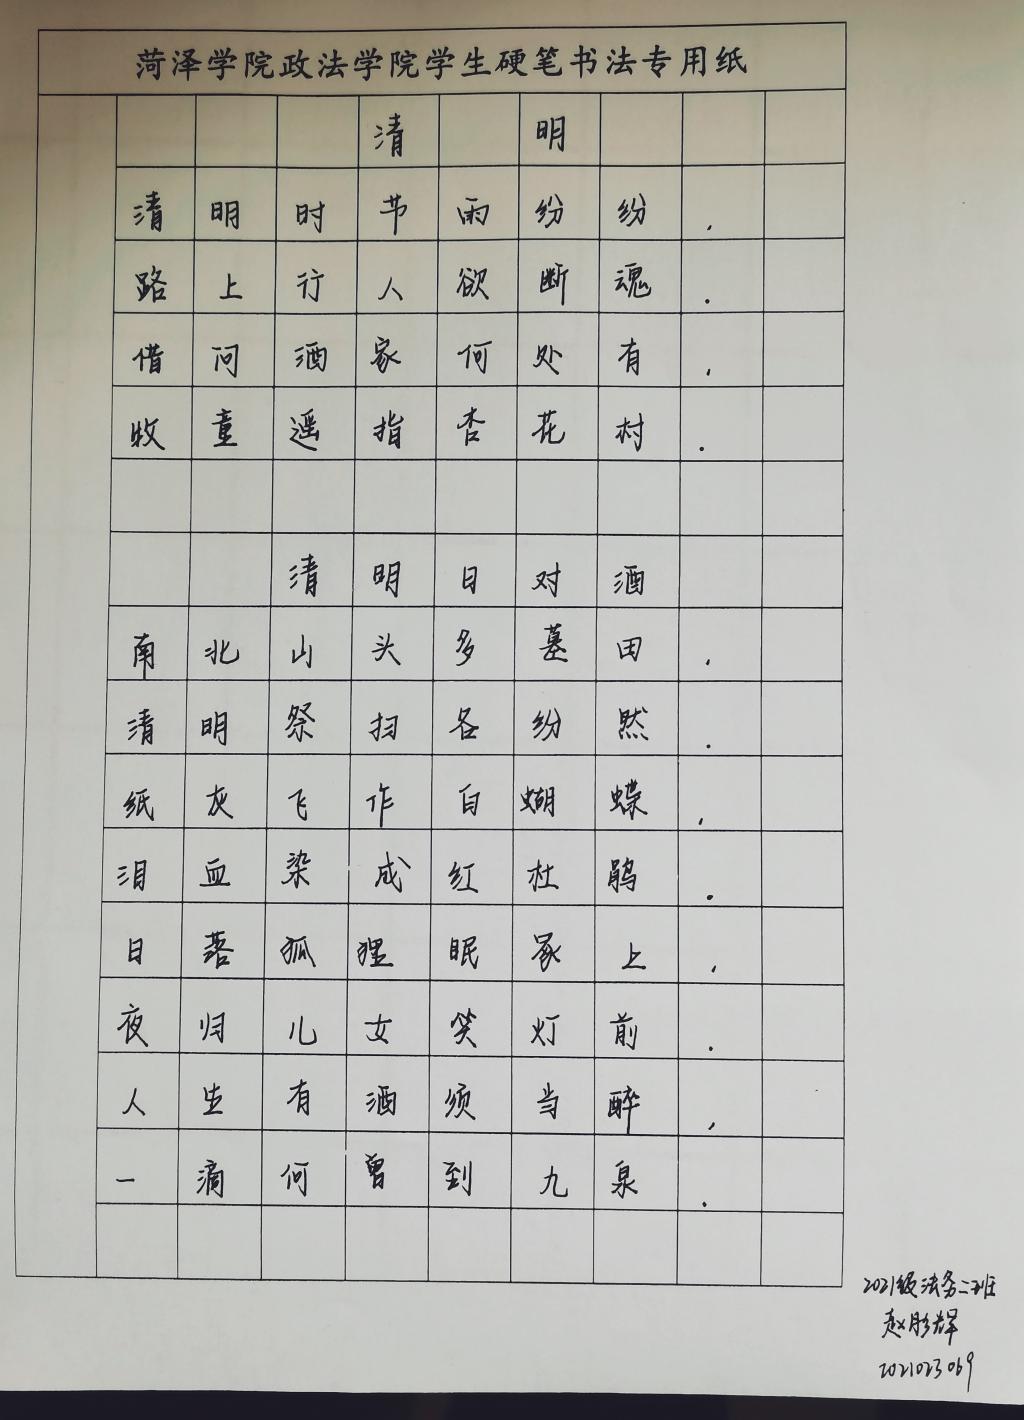 菏泽学院政法学院学生硬笔书法专用纸
清明
清明时节雨纷纷，
路上行人欲断魂.
借问酒家何处有，
牧童遥指杏花村.
清明日对酒
南北山头多墓田，
清明祭扫各纷然.
纸灰飞作白蝴蝶，
泪血染成红杜鹃.
日落狐狸眠冢上，
夜归儿女笑灯前.
人生有酒须当醉，
一滴何曾到九泉.
2021级法务二班
赵彤辉
2021023069